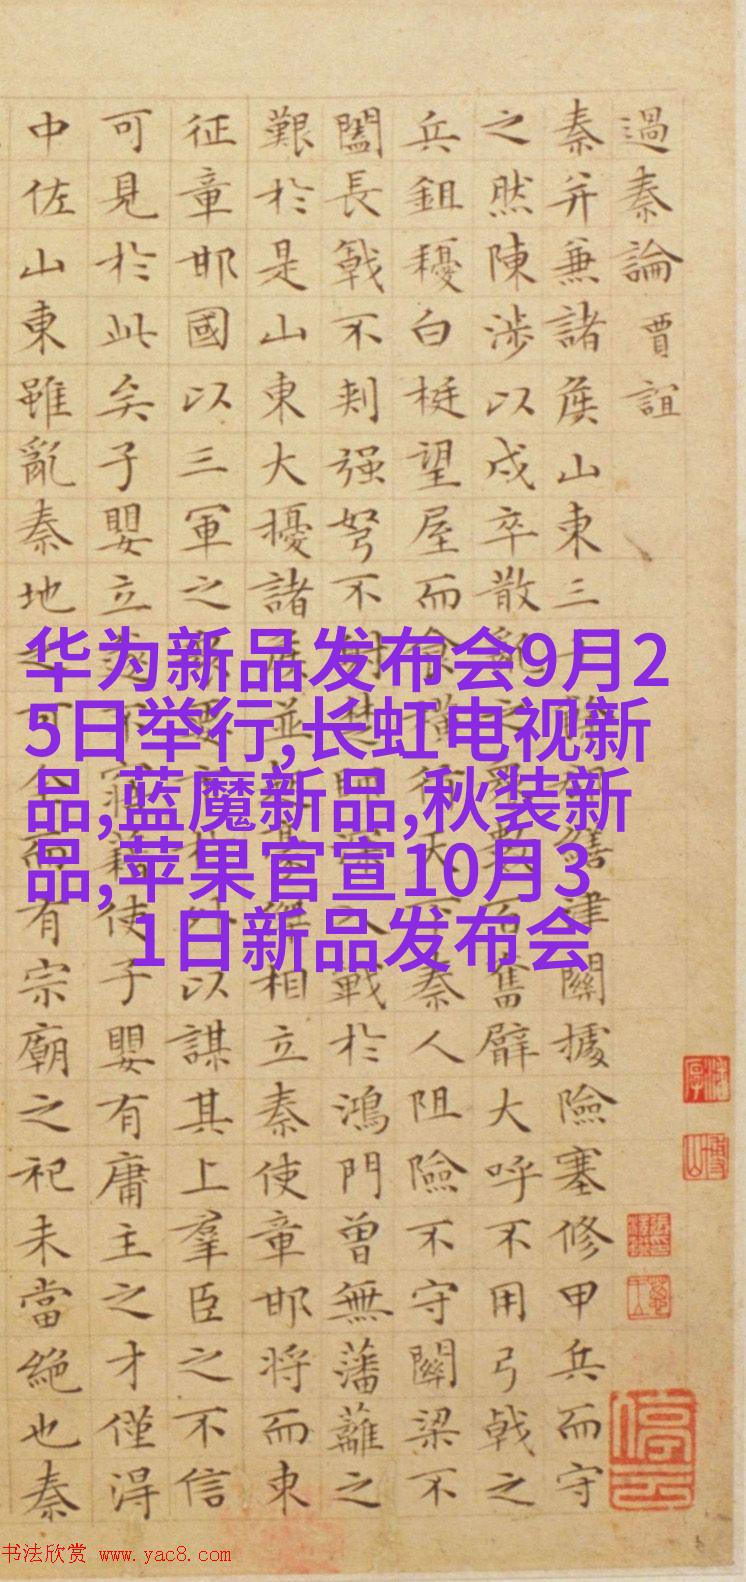 華为新品发布会9月2
5日举行,长虹电视新
品,蓝魔新品,秋装新
品,苹果官宣10月3
1日新品发布会
過秦論 賈誼
秦并兼諸侯山東三繕津關據險塞修甲兵而守
之然陳涉以戍卒散亂之數百奮臂大呼不用弓戟之
兵鉏耰白梃望屋而食橫行天下秦人阻險不守關梁不
闔長戟不刺强弩不射楚深入戰於鴻門曾無藩蘺之
艱於是山東大擾諸侯並起相立秦使章邯将而東
征章邯國以三軍之眾要市於外以謀其上羣臣之不信
可見於此矣子嬰立遂不寤藉使子嬰有庸主之才僅得
中佐山東雖亂秦地之可全而有宗廟之祀未當絶也秦
书法欣赏 www.yac8.com